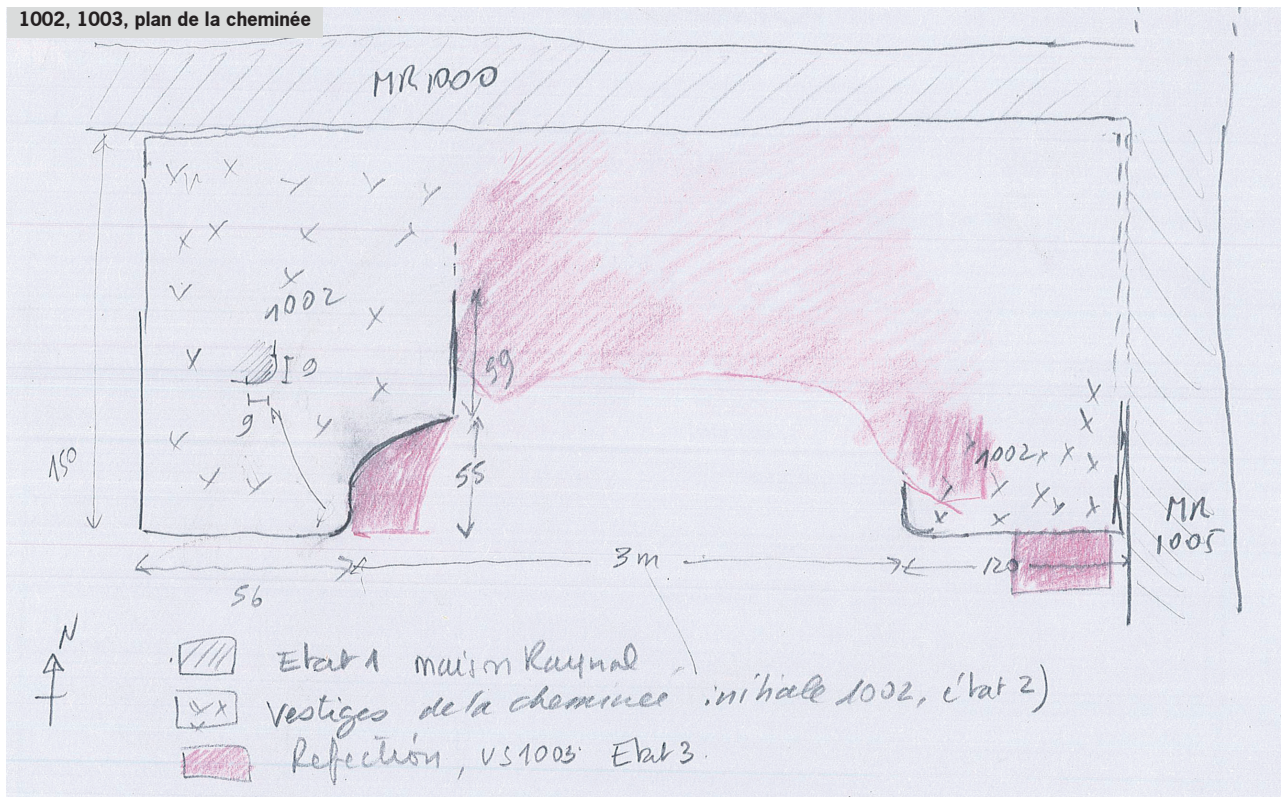 1002, 1003, plan de la cheminée
MR 1000
1002
9
59
9
1002
150
55
MR
1005
3m
120
56
N
Etat 1 maison Raynal
Vestiges de la cheminée initiale 1002, état 2)
Refection, US 1003 Etat 3.